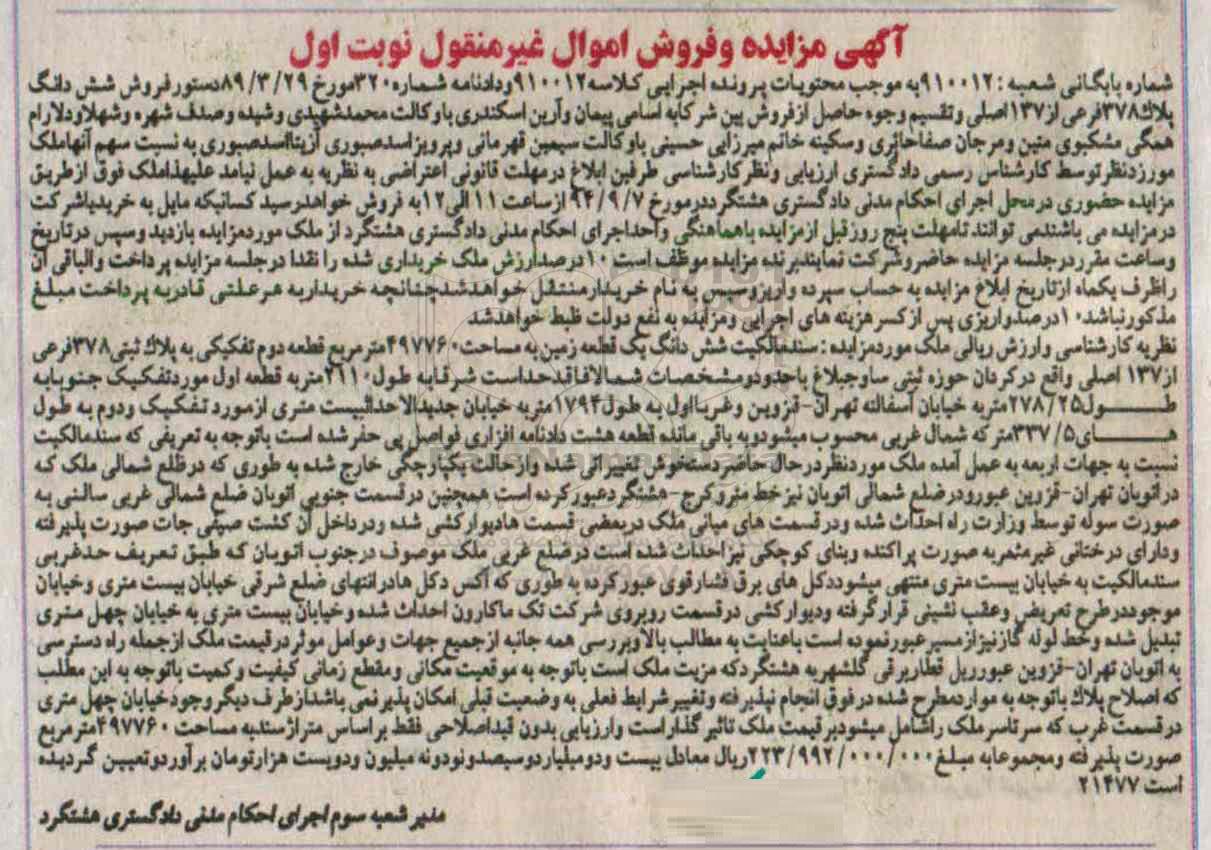 آگهی مزایده وفروش اموال غیرمنقول نوبت اول
شماره بایگانی شعبه: ۹۱۰۰۱۲به موجب محتویات پرونده اجرایی کلاسه۹۱۰۰۱۲ودادنامه شماره۳۲۰مورخ ۸۹/۳/۲۹دستورفروش شش دانگ
پلاک۳۷۸فرعی از۱۳۷اصلی وتقسیم وجوه حاصل ازفروش بین شرکابه اسامی پیمان وآرین اسکندری باوکالت محمدشهیدی وشیده وصدف شهره وشهلاودلارام
همگی مشکبوی متین ومرجان صفاحائری وسکینه خانم میرزایی حسینی باوکالت سیمین قهرمانی وپرویزاسدصبوری آزیتااسدصبوری به نسبت سهم آنهاملک
موردنظرتوسط کارشناس رسمی دادگستری ارزیابی ونظرکارشناسی طرفین ابلاغ درمهلت قانونی اعتراضی به نظریه به عمل نیامد علیهذاملک فوق ازطریق
مزایده حضوری درمحل اجرای احکام مدنی دادگستری هشتگرددرمورخ ۹۴/۹/۷ ازساعت ۱۱الی۱۲به فروش خواهدرسید کسانیکه مایل به خریدیاشرکت
درمزایده می باشندمی توانند تامهلت پنج روزقبل ازمزایده باهماهنگی واحداجرای احکام مدنی دادگستری هشتگرد از ملک موردمزایده بازدید وسپس درتاریخ
وساعت مقرردرجلسه مزایده حاضروشرکت نمایندبرنده مزایده موظف است ۱۰درصدارزش ملک خریداری شده را نقدا درجلسه مزایده پرداخت والباقی آن
راظرف یکماه ازتاریخ ابلاغ مزایده به حساب سپرده واریزوسپس به نام خریدارمنتقل خواهدشدچنانچه خریداربه هرعلتی قادربه پرداخت مبلغ
مذکورنباشد۱۰درصدواریزی پس ازکسرهزینه های اجرایی ومزایده به نفع دولت ظبط خواهدشد
نظریه کارشناسی وارزش ریالی ملک موردمزایده: سندمالکیت شش دانگ یک قطعه زمین به مساحت۴۹۷۷۶۰مترمربع قطعه دوم تفکیکی به پلاک ثبتی۳۷۸فرعی
از۱۳۷ اصلی واقع درکردان حوزه ثبتی ساوجبلاغ باحدودومشخصات شمالافاقدحداست شرقابه طول۲۱۱۰متربه قطعه اول موردتفکیک جنوبابه
طول۲۷۸/۲۵متربه خیابان آسفالته تهران-قزوین وغربااول به طول۱۷۹۴متربه خیابان جدیدالاحداثبیست متری ازمورد تفکیک ودوم به طول
های۳۳۷/۵مترکه شمال غربی محسوب میشودوبه باقی مانده قطعه هشت دادنامه افزاری فواصل پی حفرشده است باتوجه به تعریفی که سندمالکیت
نسبت به جهات اربعه به عمل آمده ملک موردنظردرحال حاضردستخوش تغییراتی شده وازحالت یکپارچگی خارج شده به طوری که درظلع شمالی ملک که
دراتوبان تهران-قزوین عبورودرضلع شمالی اتوبان نیزخط متروکرج-هشتگردعبورکرده است همچنین درقسمت جنوبی اتوبان ضلع شمالی غربی سالنی به
صورت سوله توسط وزارت راه احداث شده ودرقسمت های میانی ملک دربعضی قسمت هادیوارکشی شده ودرداخل آن کشت صیفی جات صورت پذیرفته
ودارای درختانی غیرمثمربه صورت پراکنده وبنای کوچکی نیزاحداث شده است درضلع غربی ملک موصوف درجنوب اتوبان که طبق تعریف حدغربی
سندمالکیت به خیابان بیست متری منتهی میشوددکل های برق فشارقوی عبورکرده به طوری که آکس دکل هادرانتهای ضلع شرقی خیابان بیست متری وخیابان
موجوددرطرح تعریض وعقب نشینی قرارگرفته ودیوارکشی درقسمت روبروی شرکت تک ماکارون احداث شده وخیابان بیست متری به خیابان چهل متری
تبدیل شده وخط لوله گازنیزازمسیرعبورنموده است باعنایت به مطالب بالاوبررسی همه جانبه ازجمیع جهات وعوامل موثردرقیمت ملک ازجمله راه دسترسی
به اتوبان تهران-قزوین عبورریل قطاربرقی گلشهربه هشتگردکه مزیت ملک است باتوجه به موقعیت مکانی ومقطع زمانی کیفیت وکمیت باتوجه به این مطلب
که اصلاح پلاک باتوجه به مواردمطرح شده درفوق انجام نپذیرفته وتغییرشرایط فعلی به وضعیت قبلی امکان پذیرنمی باشدازطرف دیگروجودخیابان چهل متری
درقسمت غرب که سرتاسرملک راشامل میشودبرقیمت ملک تاثیرگذاراست وارزیابی بدون قیداصلاحی فقط براساس متراژسندبه مساحت ۴۹۷۷۶۰مترمربع
صورت پذیرفته ومجموعابه مبلغ۲۲۳/۹۹۲/۰۰۰/۰۰۰ریال معادل بیست ودومیلیاردوسیصدونودونه میلیون ودویست هزارتومان برآوردوتعیین گردیده
است ۲۱۴۷۷
مدیرشعبه سوم اجرای احکام مدنی دادگستری هشتگرد